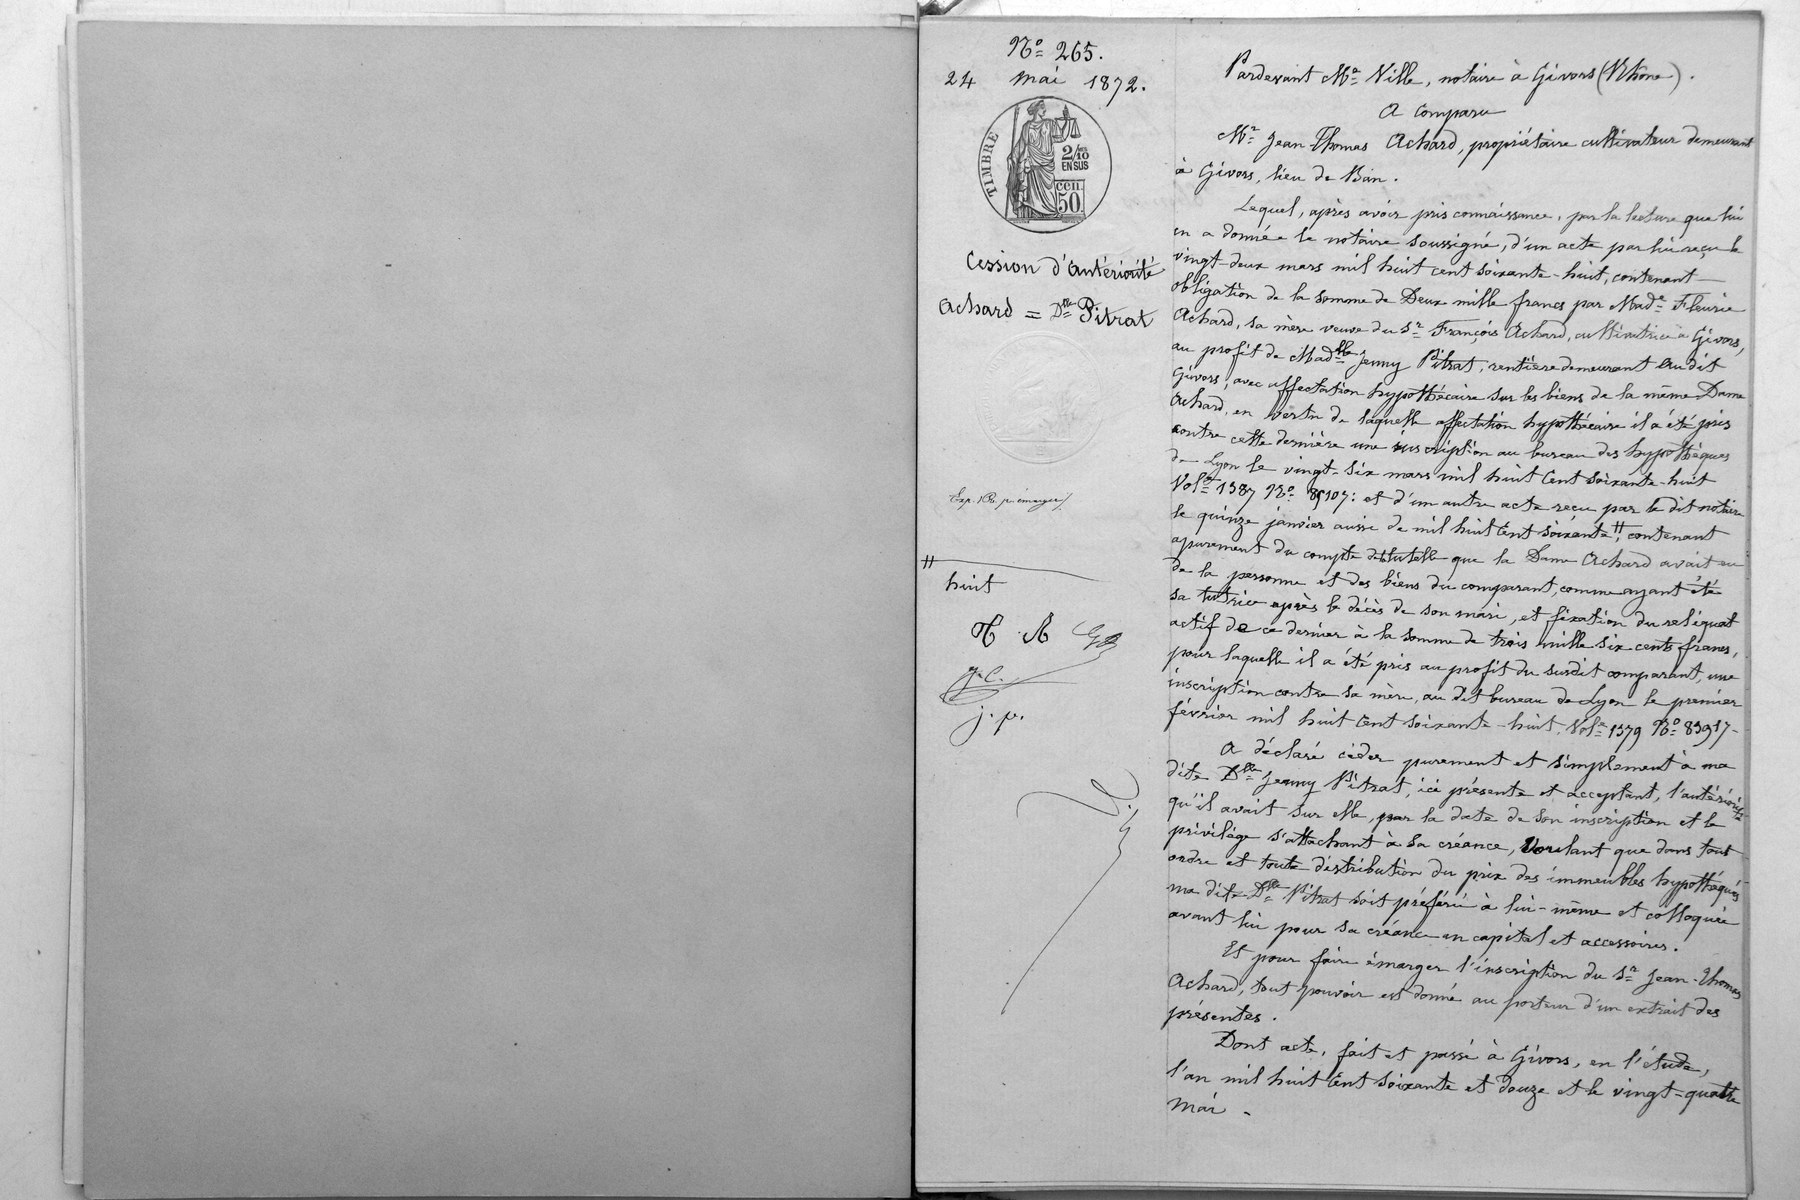 No 265.
24 mai 1872.
TIMBRE
2/10
EN SUS
cen.
50.
Cession d'antériorité
Achard = Dlle Pitrat
huit
j. p.
Pardevant Me Ville, notaire à Givors (Rhône).
A comparu
Mr Jean Thomas Achard, propriétaire cultivateur demeurant
à Givors, lieu de Bân.
Lequel, après avoir pris connaissance, par la lecture que lui
en a donnée le notaire soussigné, d'un acte par lui reçu le
vingt-deux mars mil huit cent soixante-huit, contenant
obligation de la somme de Deux mille francs par Made Fleurie
Achard, sa mère veuve du Sr François Achard, cultivatrice à Givors,
au profit de Madlle Jenny Pitrat, rentière demeurant audit
Givors, avec affectation hypothécaire sur les biens de la même Dame
Achard, en vertu de laquelle affectation hypothécaire il a été pris
contre cette dernière une inscription au bureau des hypothèques
de Lyon le vingt-six mars mil huit cent soixante-huit
Vole 1387 No 85107: et d'un autre acte reçu par le dit notaire
le quinze janvier aussi de mil huit cent soixante //, contenant
apurement du compte de tutelle que la Dame Achard avait eu
de la personne et des biens du comparant, comme ayant été
sa tutrice après le décès de son mari, et fixation du reliquat
actif de ce dernier à la somme de trois mille six cents francs,
pour laquelle il a été pris au profit du susdit comparant, une
inscription contre sa mère, au dit bureau de Lyon le premier
février mil huit cent soixante-huit, Vole 1379 No 83917-
A déclaré céder purement et simplement à ma
dite Dlle Jenny Pitrat, ici présente et acceptant, l'antériorité
qu'il avait sur elle, par la date de son inscription et le
privilège s'attachant à sa créance, voulant que dans tout
ordre et toute distribution du prix des immeubles hypothéqués
ma dite Dlle Pitrat soit préférée à lui-même et colloquée
avant lui pour sa créance en capital et accessoires.
Et pour faire émarger l'inscription du Sr Jean-Thomas
Achard, tout pouvoir est donné au porteur d'un extrait des
présentes.
Dont acte, fait et passé à Givors, en l'étude,
l'an mil huit cent soixante et douze et le vingt-quatre
mai -